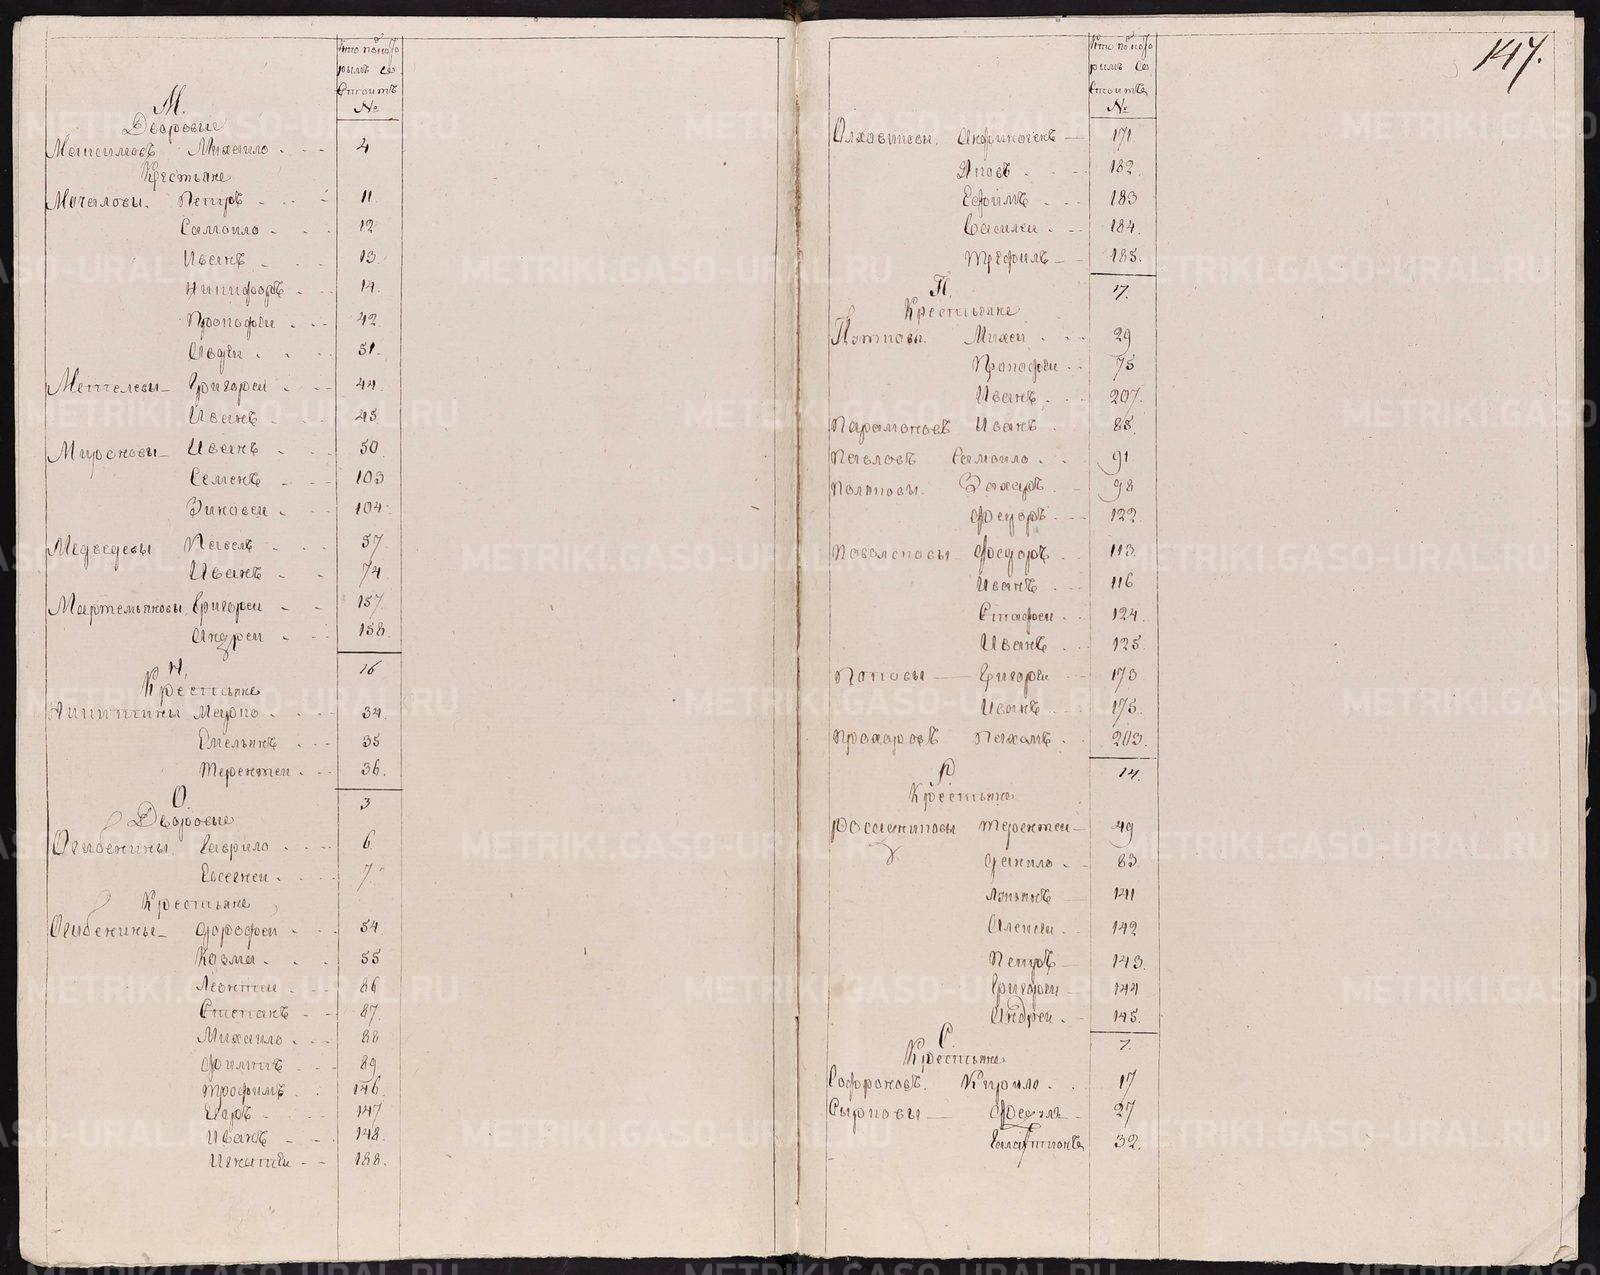 Кто подкото
рымъ со
стоитъ
№
М.
Дворовые
Михаило 4
Крестьяне
Мочаловы. Петръ 11
Самоило 12
Иванъ 13.
Никифоръ 14.
Прокофеи 42
Авдеи 51.
Метелевы Григореи 44
Иванъ 45
Мироновы Иванъ 50
Семенъ 103
Зиновеи 104
Медведевы Павелъ 57
Иванъ 74
Мартемьяновы Григореи 157
Андреи 158
16
Н.
Крестьяне
Никитины Марко 34
Емельянъ 35
Терентеи 36.
3
О
Дворовые
Огибенины Гаврило 6
Евсегнеи 7
Крестьяне
Огибенины Дорофеи 54
Козма 55
Леонтеи 86
Степанъ 87.
Михаило 88
Филипъ 89
Трофимъ 146
Егоръ 147
Иванъ 148.
Игнатеи 188.
147.
Кто подкото
рымъ со
стоитъ
№
Олховиковы. 171.
Яковъ 182
Ефимъ 183
Василеи 184.
Трефилъ 185.
17.
П.
Крестьяне
Пятковы. Михеи 29
Прокофеи 75
Иванъ 207.
Парамоновъ Иванъ 85.
Павловъ Самоило 91
Поляковы. Захаръ 98
Федоръ 122
Федоръ 113.
Иванъ 116
Стафеи 124.
Иванъ 125
Поповы Григореи 173
Иванъ 175.
Прохоровъ Пахомъ 203.
14.
Р
Крестьяне
Терентеи 49
Данило 83
141
Алексеи 142
Петръ 143.
Григореи 144
Андреи 145.
7.
С.
Крестьяне
Софроновъ. Кирило 17
Сырковы 27
Галактионъ 32.
METRIKI.GASO-URAL.RU